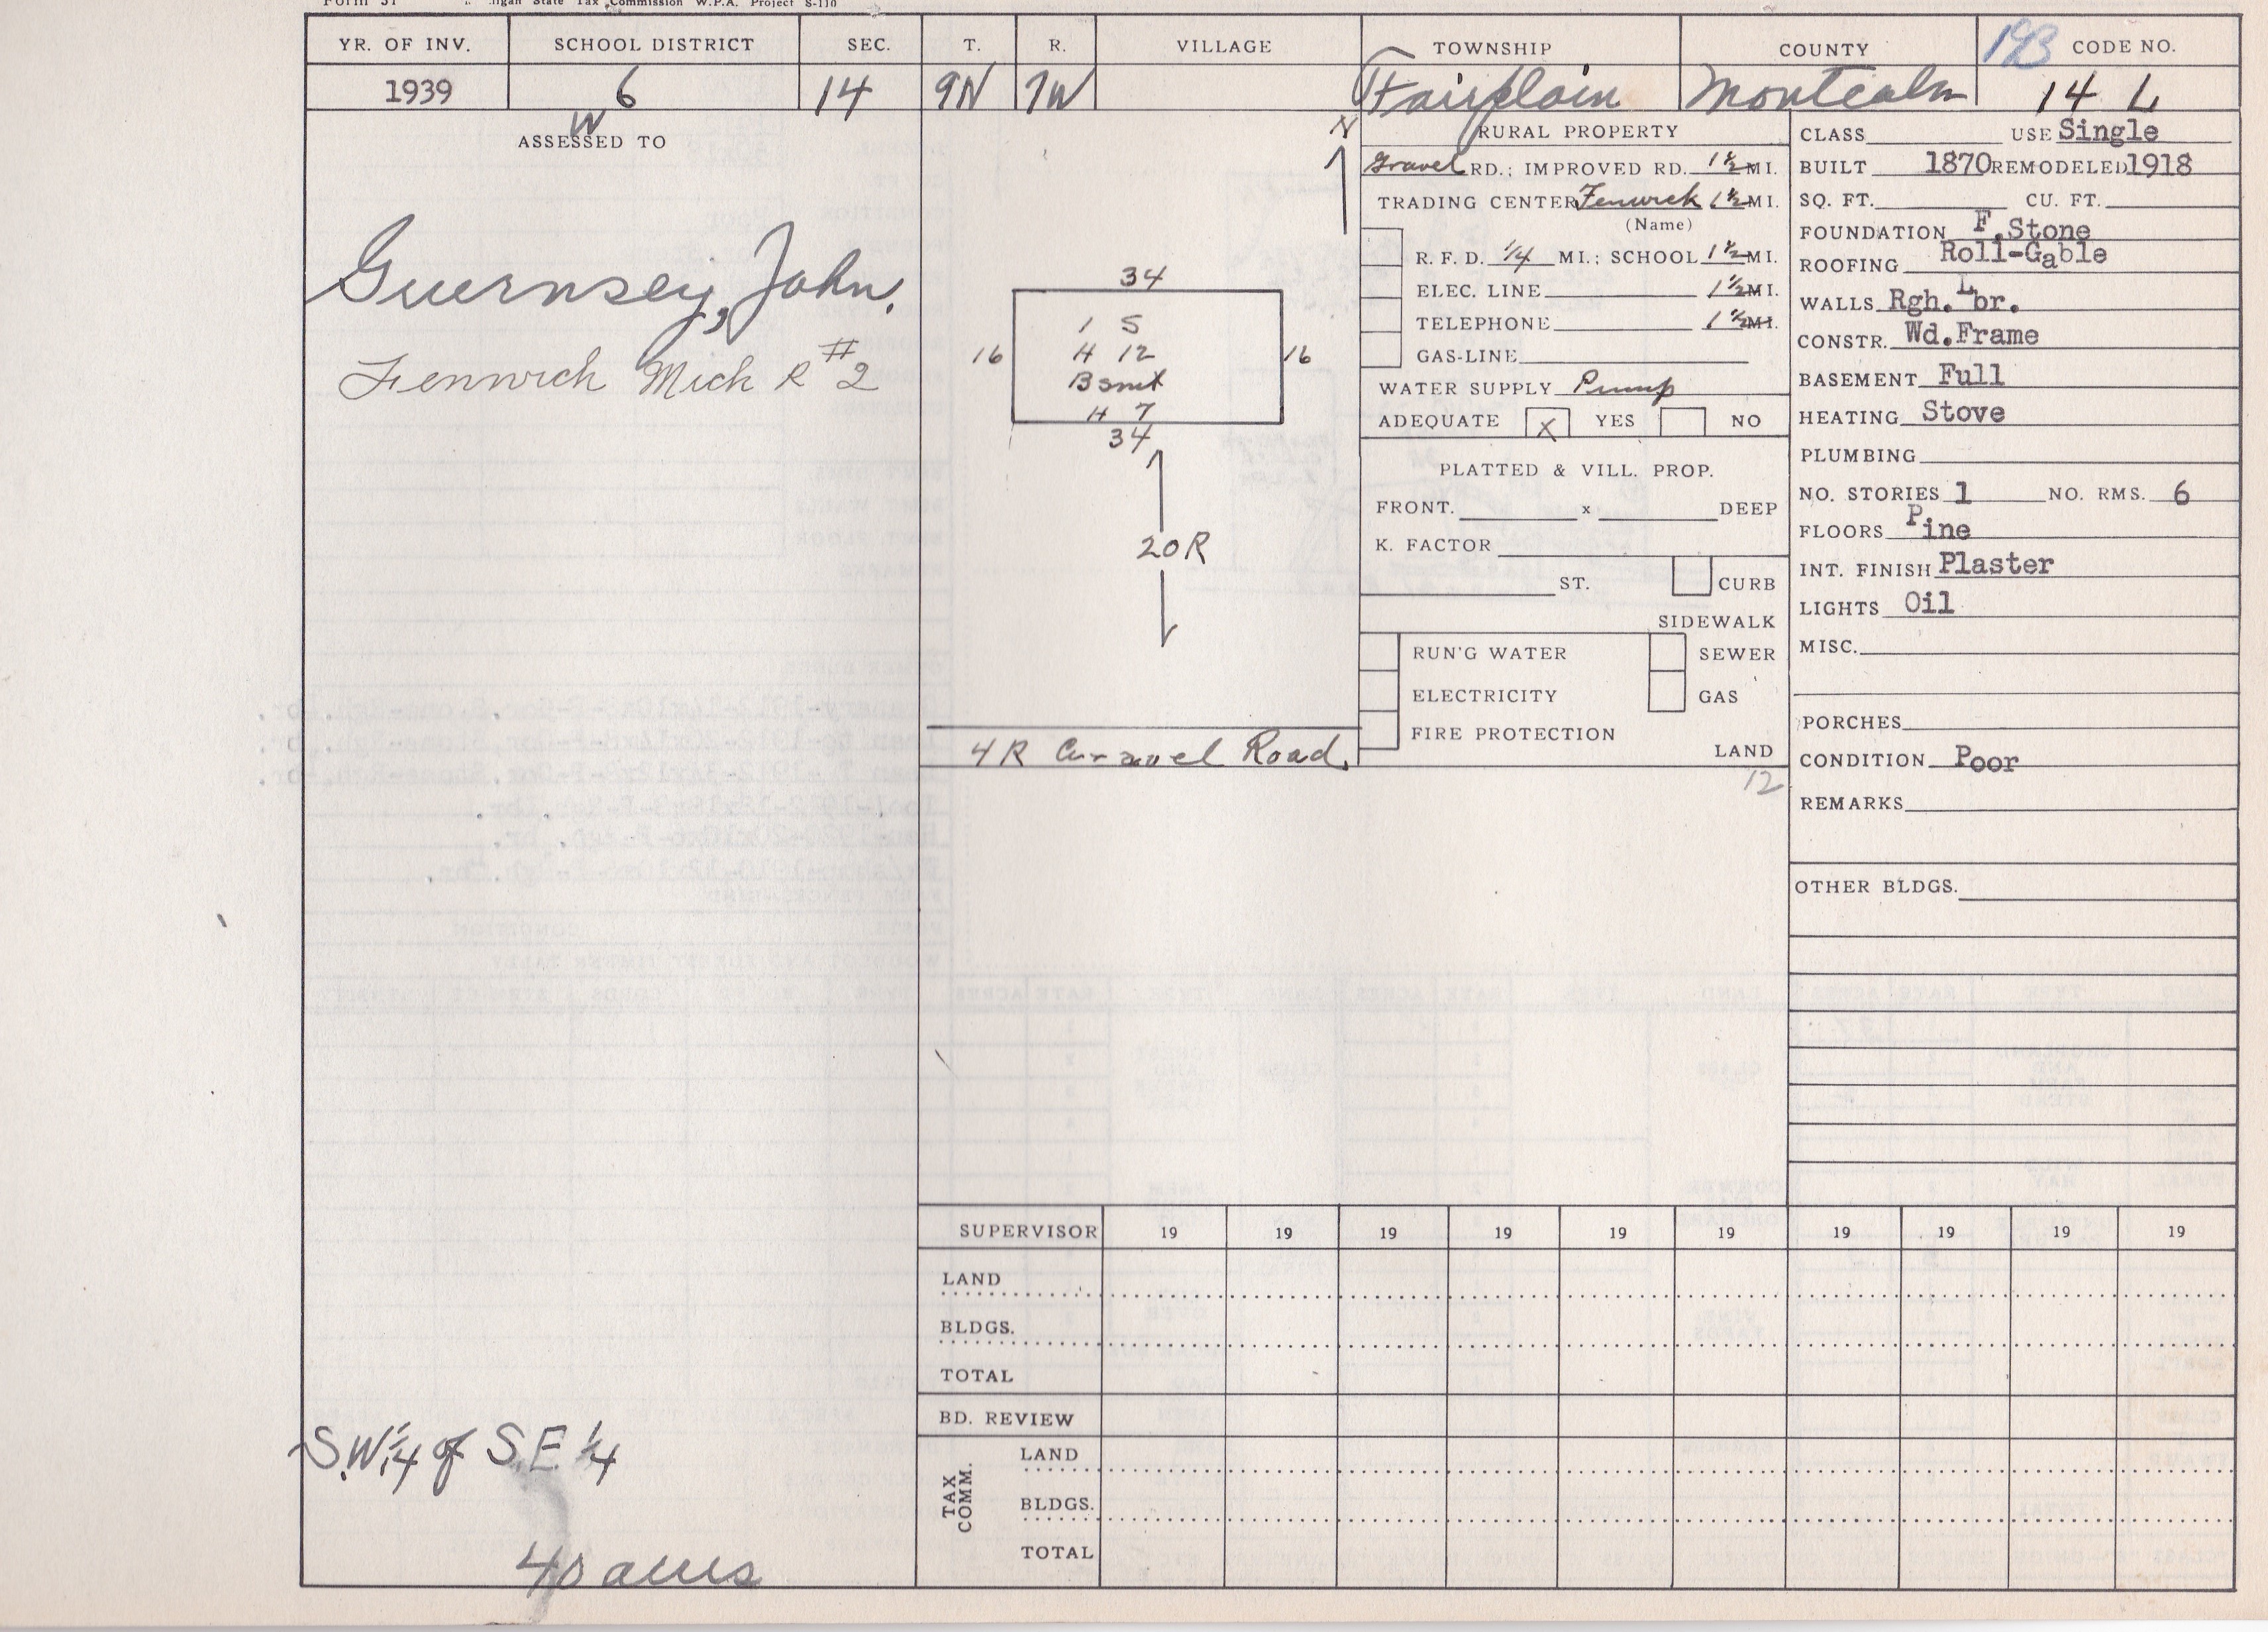 Form 31 igan State Tax Commission W.P.A. Project S-110
YR. OF INV. SCHOOL DISTRICT SEC. T. R. VILLAGE TOWNSHIP COUNTY CODE NO.
1939 6 14 9N 7W Fairplain Montcalm 14 L
W
ASSESSED TO
Guernsey, John.
Fenwick Mich R #2
S.W. 1/4 of S.E. 1/4
40 acres
N
34
16 1 S 16
H 12
Bsmt
H 7
34
20R
4R Gravel Road
RURAL PROPERTY
Gravel RD.; IMPROVED RD. 1 1/2 MI.
TRADING CENTER Fenwick 1 1/2 MI.
(Name)
R. F. D. 1/4 MI.; SCHOOL 1 1/2 MI.
ELEC. LINE 1 1/2 MI.
TELEPHONE 1 1/2 MI.
GAS-LINE
WATER SUPPLY Pump
ADEQUATE X YES NO
PLATTED & VILL. PROP.
FRONT. x DEEP
K. FACTOR
ST. CURB
SIDEWALK
RUN'G WATER SEWER
ELECTRICITY GAS
FIRE PROTECTION
LAND
12
CLASS USE Single
BUILT 1870 REMODELED 1918
SQ. FT. CU. FT.
FOUNDATION F.Stone
ROOFING Roll-Gable
WALLS Rgh.Lbr.
CONSTR. Wd.Frame
BASEMENT Full
HEATING Stove
PLUMBING
NO. STORIES 1 NO. RMS. 6
FLOORS Pine
INT. FINISH Plaster
LIGHTS Oil
MISC.
PORCHES
CONDITION Poor
REMARKS
OTHER BLDGS.
SUPERVISOR 19 19 19 19 19 19 19 19 19 19
LAND
BLDGS.
TOTAL
BD. REVIEW
TAX COMM.
LAND
BLDGS.
TOTAL